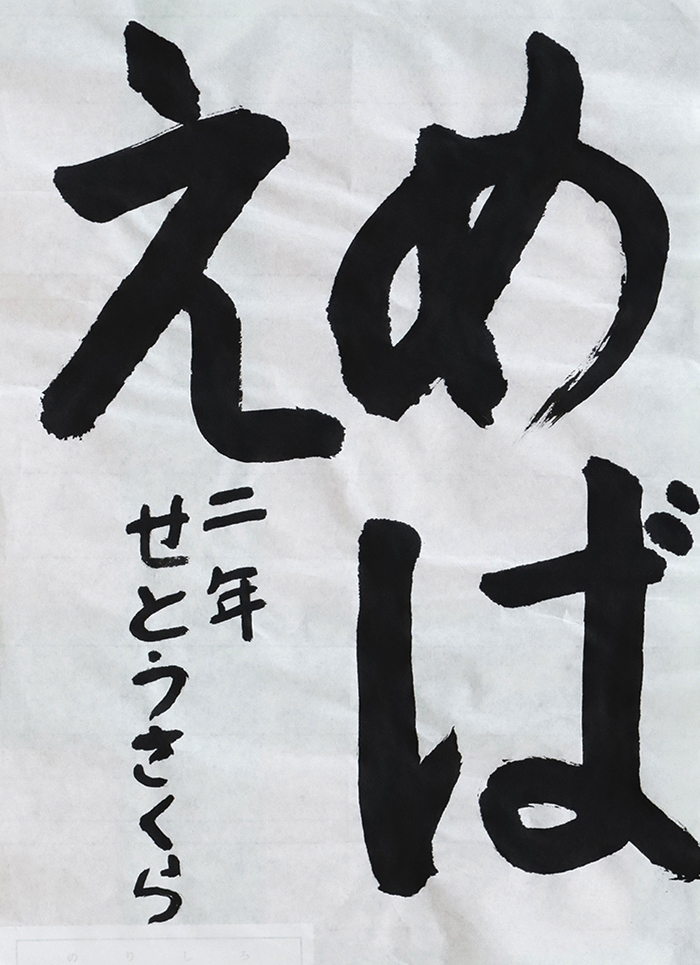 めば
え
二年
せとうさくら
のりしろ